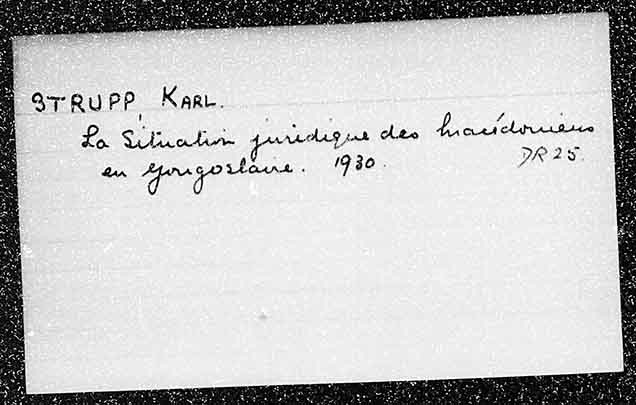 STRUPP KARL.
La Situation juridique des Macédoniens
en Yougoslavie. 1930.
DR 25.